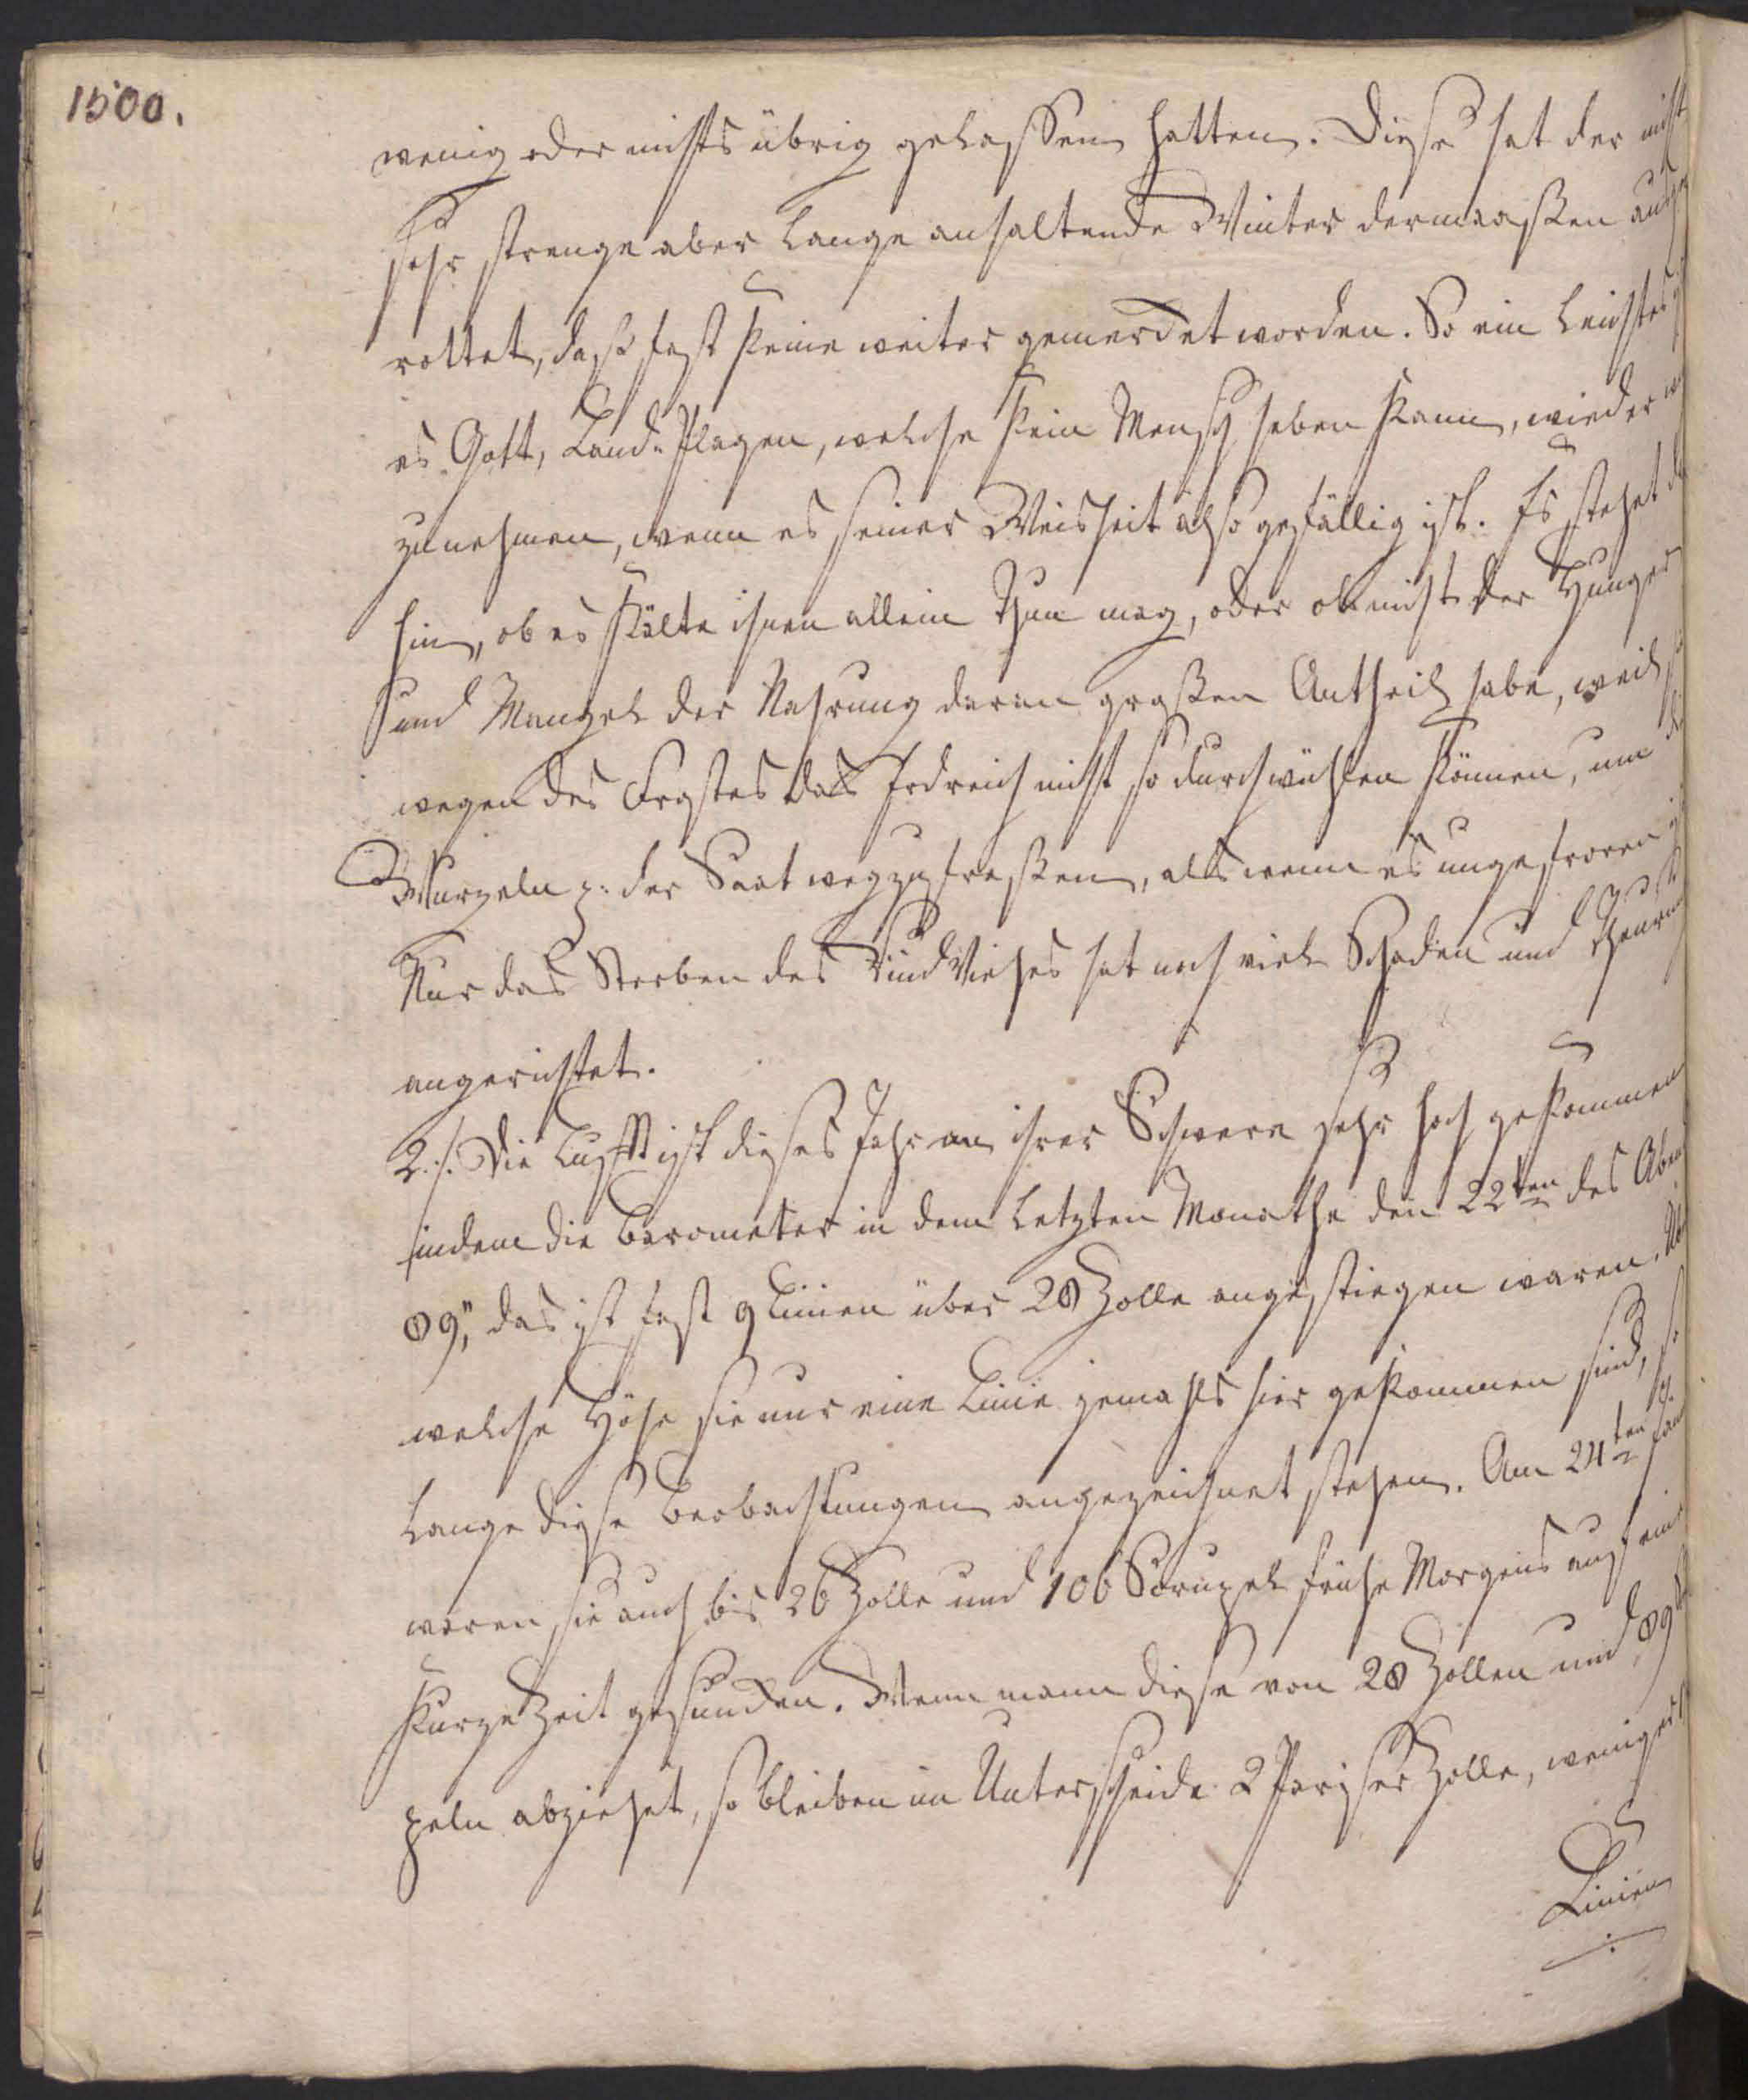 1500.
wenig oder nichts übrig gelassen hatten. Diese hat der nicht
sehr strenge aber lange anhaltende Winter dermaaßen ausge
rottet, daß fast keine weiter gemerdet worden. So ein leichtes
es Gott, Land-Plagen, welche kein Mensch heben kann, wieder
zunehmen, wenn es seiner Weisheit also gefällig ist. Es stehet
hin, ob es Kälte ihnen allein thun mag, oder ob nicht der Hunger
und Mangel der Nahrung daran großen Antheil habe, weil
wegen des Frostes das Erdreich nicht so durchwühlen können, um
Wurzeln z: der Saat wegzufreßen, als wenn es ungefroren
Nur das Sterben des Rind Viehes hat noch viel Schaden und Theurung
angerichtet.
2./. Die Lufft ist dieses Jahr an ihrer Schwere sehr hoch gekommen
indem die Barometer in dem letzten Monathe den 22ten des Abends
89,'' das ist fast 9 Linien über 28 Zolle angestiegen waren.
welche Höhe sie nur eine Linie jemahls hier gekommen sind, so
lange diese Beobachtungen angezeichnet stehen. Am 24ten
waren sie auch bis 26 Zolle und 106 Scrupel frühe Morgens auf eine
kurze Zeit gesunken. Wenn mann diese von 28 Zollen und 89
peln abziehet, so bleiben im Unterscheide 2 Pariser Zolle, weniger
Linien